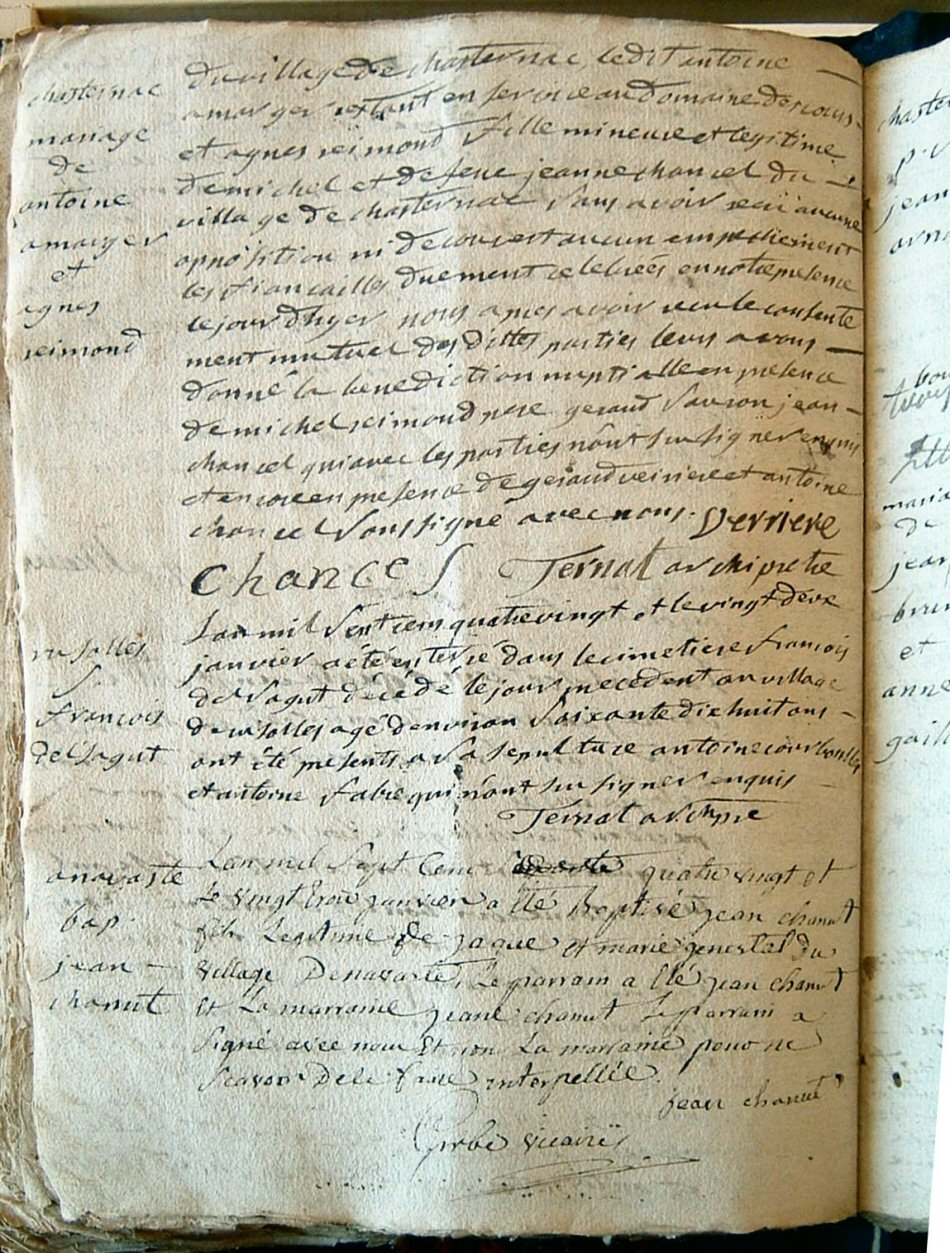 chasternac
mariage
de
antoine
amarger
et
agnes
reimond
du village de chasternac, ledit antoine
amarger estant en service au domaine de
et agnes reimond fille mineure et legitime
de michel et de feue jeanne chancel du
village de chasternac sans avoir reçu aucune
oposition ni decouvert aucun empechement
les fiancailles duement celebreés en notre presence
le jour d'hyer nous apres avoir receu le consente
ment mutuel des dittes parties leurs avons
donné la benediction nuptialle en presence
de michel reimond pere geraud jean
chancel qui avec les parties n'ont su signer enquis
et encore en presence de geraud verriere et antoine
chancel soussigne avec nous. Verriere
chancel Ternat archipretre
rusolles
françois
delsagut
L'an mil sept cens quatre vingt et le vingt deux
janvier a été enterré dans le cimetiere francois
delsagut décédé le jour precedent au village
de rusolles agé denviron soixante dix huit ans
ont été presents a sa sepulture antoine
et antoine fabre qui n'ont su signer enquis
Ternat
anavaste
bap.
jean
chanut
Lan mil sept cent quatre vingt et
Le vingt trois janvier a été baptisé jean chanut
fils Legitime de jaque et marie genestal du
village Denavaste, Le parrain a été jean chanut
Et La marraine jeane chanut Le parrain a
signé avec nous Et non La marraine pour ne
scavoir De le faire interpellée.
jean chanut
vicaire